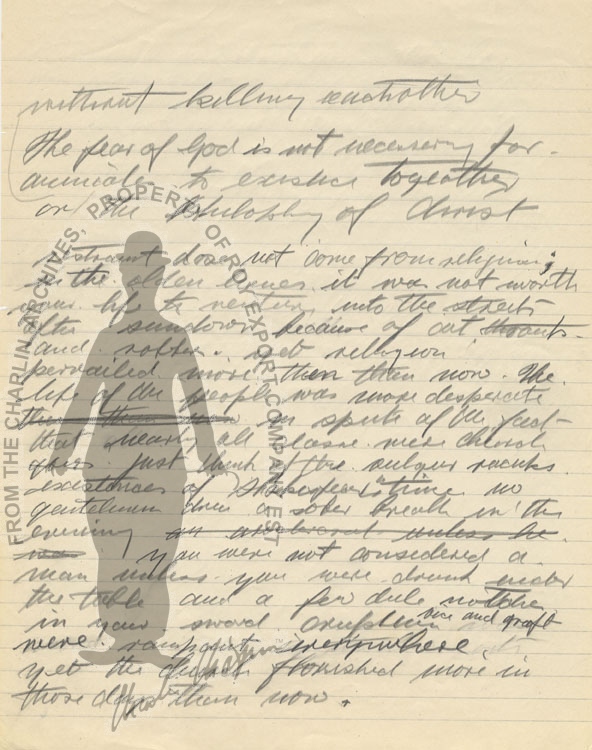 without killing eachother
The fear of God is not necessery for
animals to existed together
or the Philoslphy of Christ
restraint does not come from religion;
in the olden times it was not worth
your life to venture into the streets
after sundown because of cut throats
and robbers. yet religion
pervailed more then than now. The
life of the people was more desperate
in spite of the fact
that nearly all classes were church
goers. just think of the vulgar
existences of Shakespear's time no
gentleman drew a sober breath in the
evening unless he
was you were not considered a
man unless you were drunk under
the table and a few notches
in your sword. vice and graft
were rampant everywhere
yet the church flourished more in
those days than now.
FROM THE CHARLIN ARCHIVES, PROPERTY OF ROY EXPORT COMPANY EST